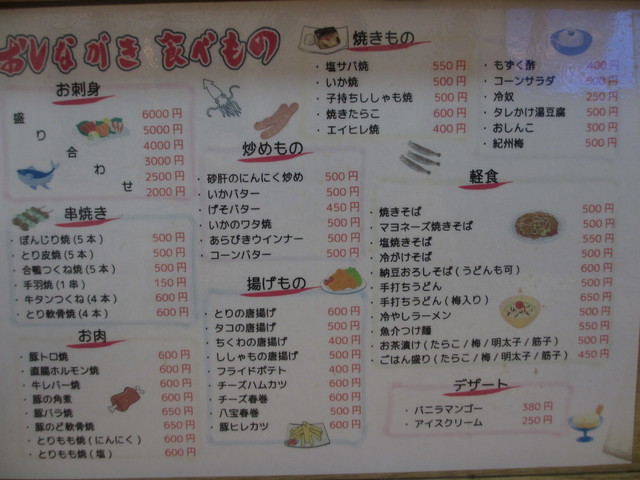 おしながき 食べもの
お刺身
盛り合わせ
6000円
5000円
4000円
3000円
2500円
2000円
串焼き
・ぼんじり焼(5本) 500円
・とり皮焼(5本) 500円
・合鴨つくね焼(5本) 500円
・手羽焼(1串) 150円
・牛タンつくね(4本) 600円
・とり軟骨焼(4本) 600円
お肉
・豚トロ焼 600円
・直腸ホルモン焼 600円
・牛レバー焼 600円
・豚の角煮 600円
・豚バラ焼 650円
・豚のど軟骨焼 650円
・とりもも焼(にんにく) 600円
・とりもも焼(塩) 600円
炒めもの
・砂肝のにんにく炒め 500円
・いかバター 500円
・げそバター 450円
・いかのワタ焼 500円
・あらびきウインナー 500円
・コーンバター 500円
揚げもの
・とりの唐揚げ 600円
・タコの唐揚げ 500円
・ちくわの唐揚げ 400円
・ししゃもの唐揚げ 500円
・フライドポテト 400円
・チーズハムカツ 600円
・チーズ春巻 600円
・八宝春巻 500円
・豚ヒレカツ 600円
焼きもの
・塩サバ焼 550円
・いか焼 500円
・子持ちししゃも焼 500円
・焼きたらこ 600円
・エイヒレ焼 400円
・もずく酢 400円
・コーンサラダ 500円
・冷奴 250円
・タレかけ湯豆腐 500円
・おしんこ 300円
・紀州梅 500円
軽食
・焼きそば 500円
・マヨネーズ焼きそば 500円
・塩焼きそば 550円
・冷がけそば 500円
・納豆おろしそば(うどんも可) 600円
・手打ちうどん 500円
・手打ちうどん(梅入り) 650円
・冷やしラーメン 500円
・魚介つけ麺 550円
・お茶漬け(たらこ/梅/明太子/筋子) 500円
・ごはん盛り(たらこ/梅/明太子/筋子) 450円
デザート
・バニラマンゴー 380円
・アイスクリーム 250円